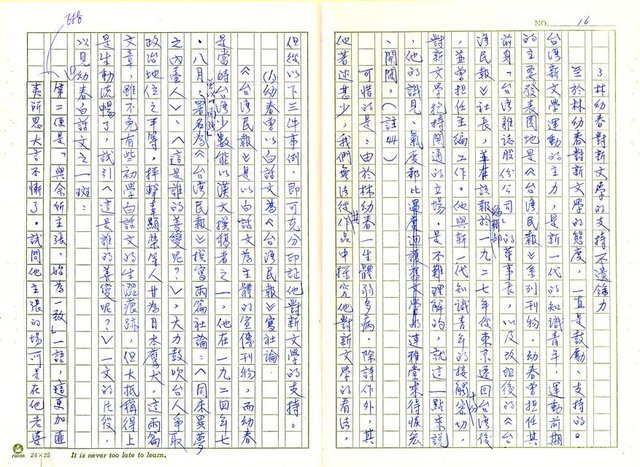 NO. 16
3 林幼春對新文學的支持不遺餘力
至於林幼春對新文學的態度，一直是鼓勵、支持的。
台灣新文學運動的主力，是新一代的知識青年，運動前期
的主要發表園地是《台灣民報》系列刊物，幼春曾擔任其
前身「台灣雜誌股份公司」的董事長，以及改組後的《台
灣民報》社長，該報於一九二七年從東京遷回台灣後
編輯部
，並曾擔任主編工作。他與新一代知識青年的接觸密切，
他的識見、氣度都比連雅堂來得恢宏
對新文學抱持開通的立場，是不難理解的，就這一點來說
、開闊。（註44）
可惜的是：由於林幼春一生體弱多病，除詩作外，其
他著述甚少，我們無法從作品中探究他對新文學的看法，
但從以下三件事例，即可充分印証他對新文學的支持。
(1)幼春曾以白話文為《台灣民報》寫社論
《台灣民報》是以白話文為主體的宣傳刊物，而幼春
是當時台灣少數能以漢文撰稿者之一，他在一九二四年七
、八月，署名為《台灣民報》撰寫兩篇社論：〈同床異夢
之內臺人〉、〈這是誰的善變呢？〉，大力鼓吹台人爭取
政治地位之平等，抨擊辜顯榮等人甘為日本鷹犬，這兩篇
文章，雖不免有些初學白話文的生澀痕跡，但大抵稱得上
是生動流暢了，試引〈這是誰的善變呢？〉一文的片段，
以見幼春白話文之一斑：
第二條是「與余所主張，始為一致」一語，這更加匪
夷所思大言不慚了。試問他主張的場可是在他老婆
24×25
It is never too late to learn.